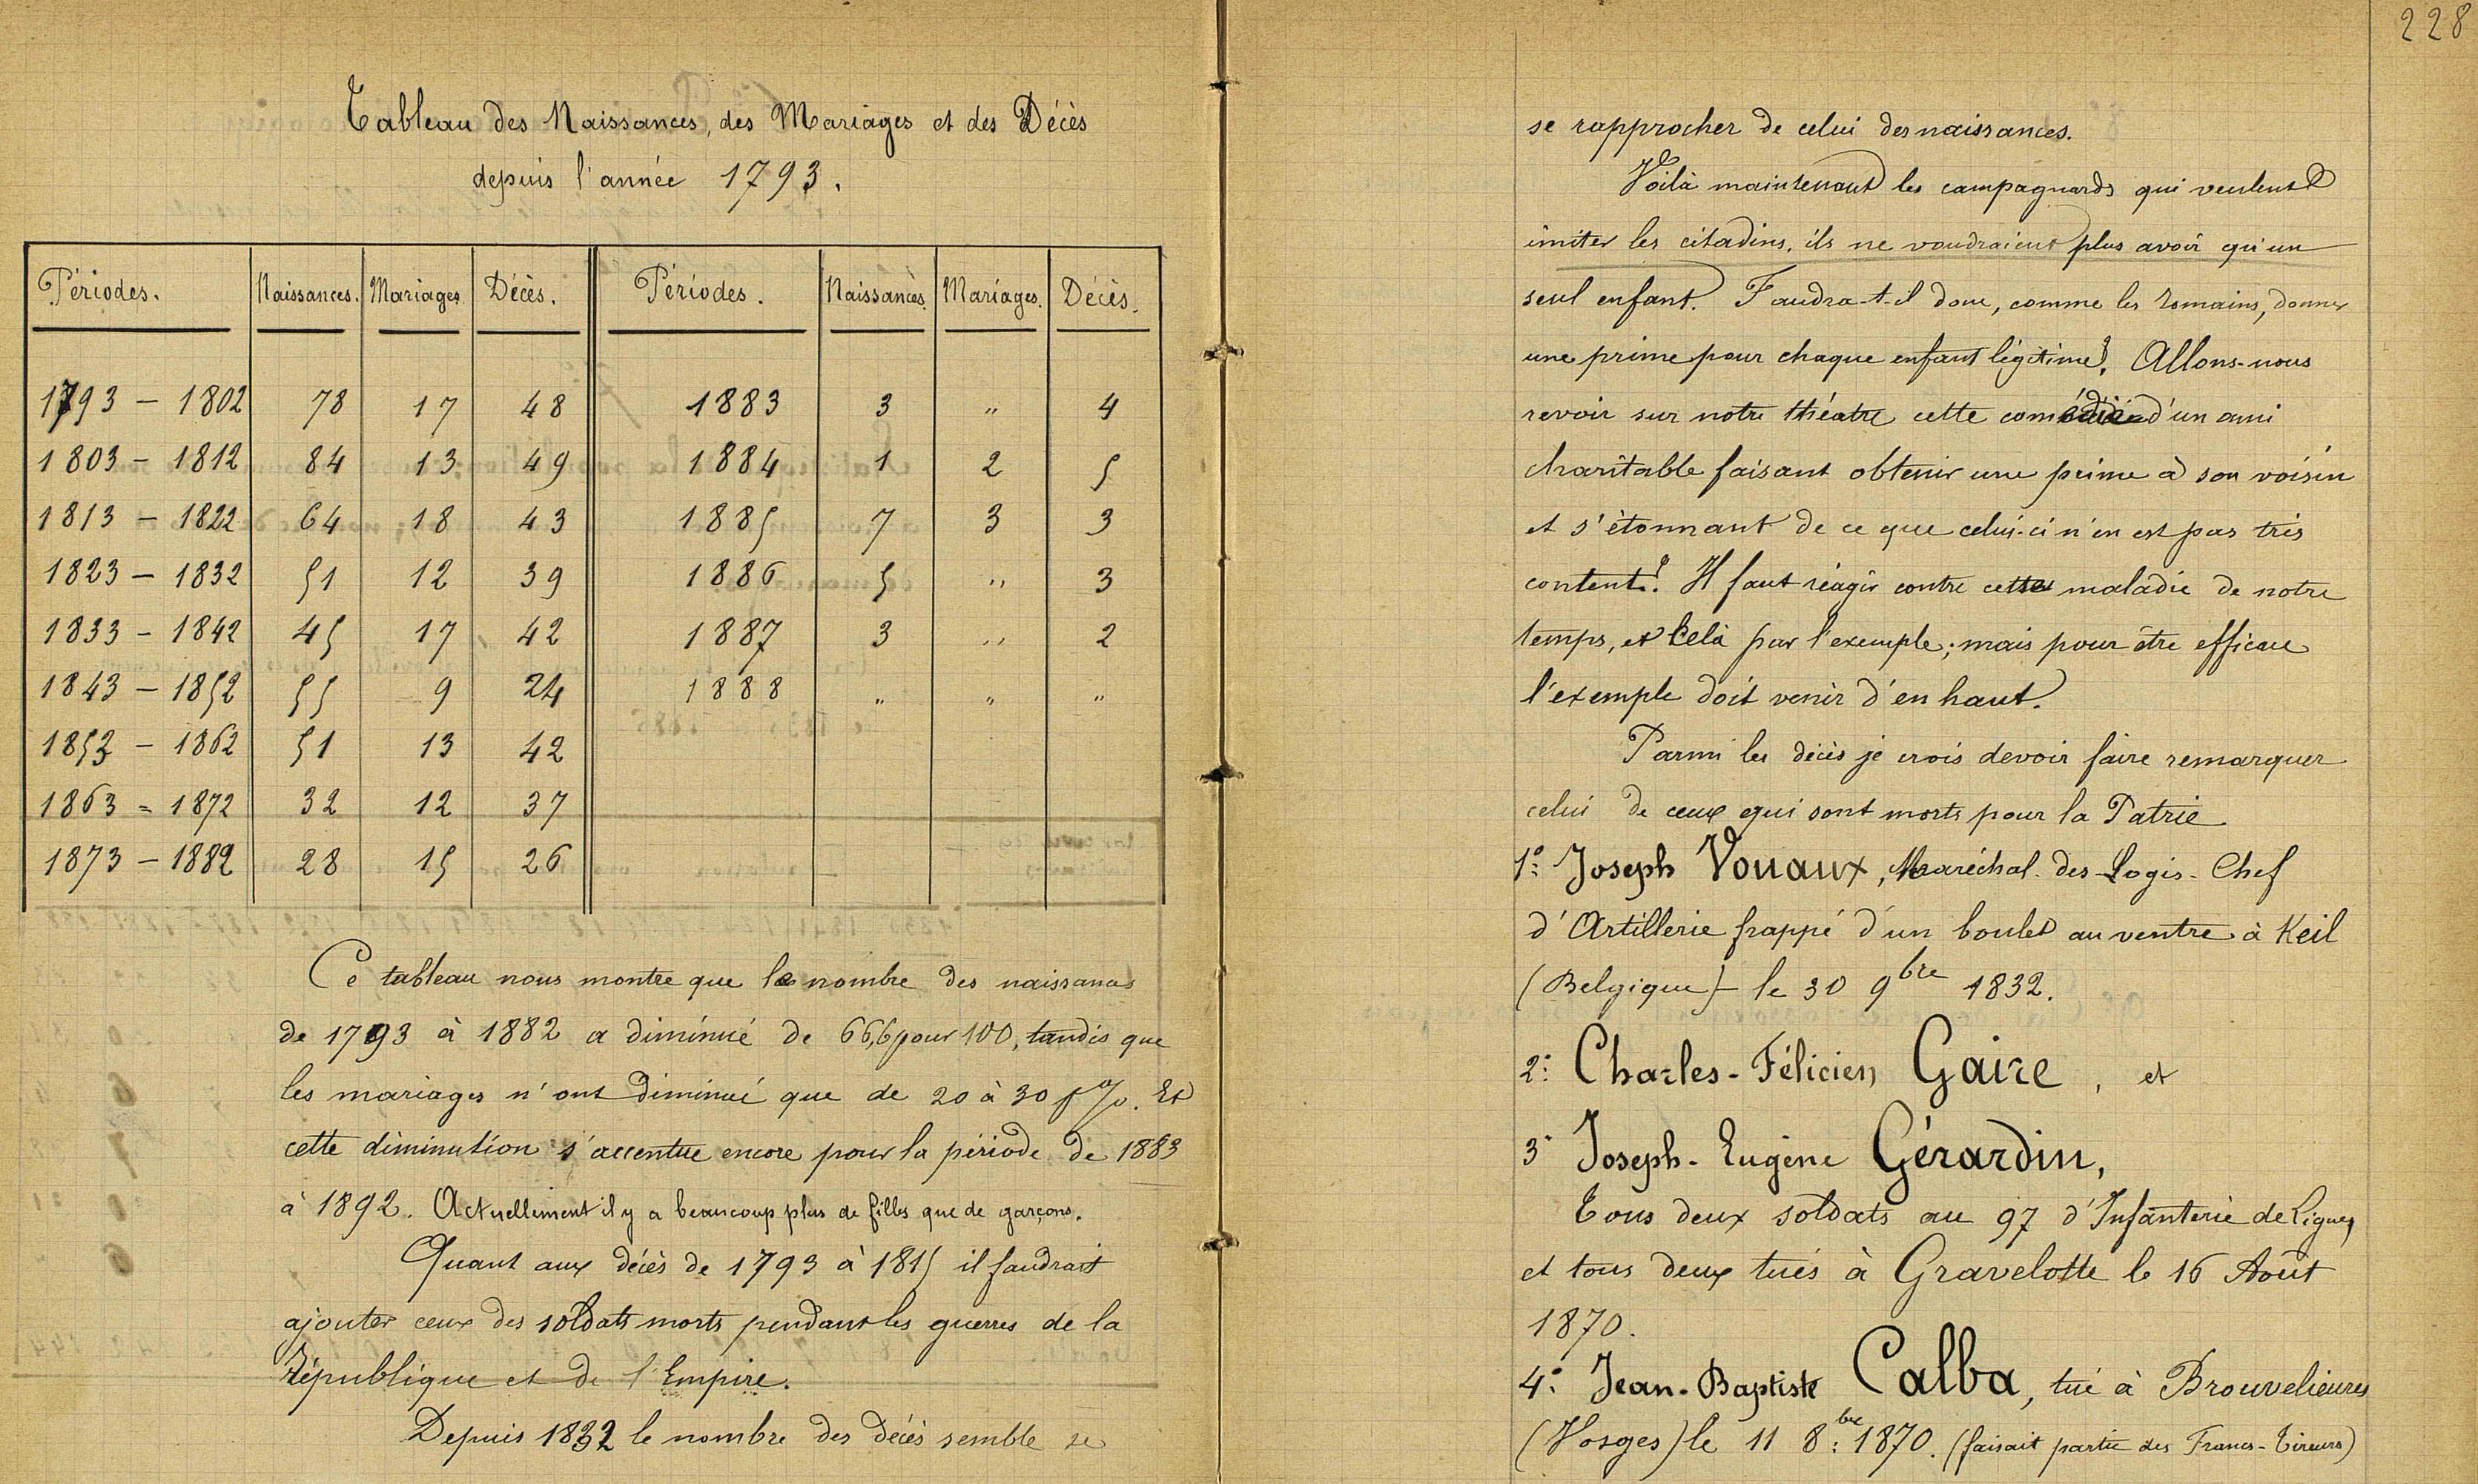 Tableau des Naissances, des Mariages et des Décès
depuis l'année 1793.
Périodes. Naissances. Mariages. Décès. Périodes. Naissances. Mariages. Décès.
1793 - 1802 78 17 48 1883 3 " 4
1803 - 1812 84 13 49 1884 1 2 5
1813 - 1822 64 18 43 1885 7 3 3
1823 - 1832 51 12 39 1886 5 " 3
1833 - 1842 45 17 42 1887 3 " 2
1843 - 1852 55 9 24 1888 " " "
1853 - 1862 51 13 42
1863 = 1872 32 12 37
1873 - 1882 28 15 26
Ce tableau nous montre que le nombre des naissances
de 1793 à 1882 a diminué de 66,6 pour 100, tandis que
les mariages n'ont diminué que de 20 à 30 p %. Et
cette diminution s'accentue encore pour la période de 1883
à 1892. Actuellement il y a beaucoup plus de filles que de garçons.
Quant aux décès de 1793 à 1815 il faudrait
ajouter ceux des soldats morts pendant les guerres de la
République et de l'Empire.
Depuis 1832 le nombre des décès semble se
228
se rapprocher de celui des naissances.
Voilà maintenant les campagnards qui veulent
imiter les citadins, ils ne voudraient plus avoir qu'un
seul enfant. Faudra-t-il donc, comme les Romains, donner
une prime pour chaque enfant légitime? Allons-nous
revoir sur notre théatre cette comédie d'un ami
charitable faisant obtenir une prime à son voisin
et s'étonnant de ce que celui-ci n'en est pas très
content? Il faut réagir contre cette maladie de notre
temps, et celà par l'exemple; mais pour être efficace
l'exemple doit venir d'en haut.
Parmi les décès je crois devoir faire remarquer
celui de ceux qui sont morts pour la Patrie
1º: Joseph Vouaux, Maréchal-des-Logis-Chef
d'Artillerie frappé d'un boulet au ventre à Keil
(Belgique) le 30 9bre 1832.
2º: Charles-Félicien Gaire, et
3º Joseph-Eugène Gérardin,
Tous deux soldats au 97 d'Infanterie de Ligne,
et tous deux tués à Gravelotte le 16 Août
1870.
4º: Jean-Baptiste Calba, tué à Brouvelieures
(Vosges) le 11 8bre: 1870. (faisait partie des Francs-Tireurs)